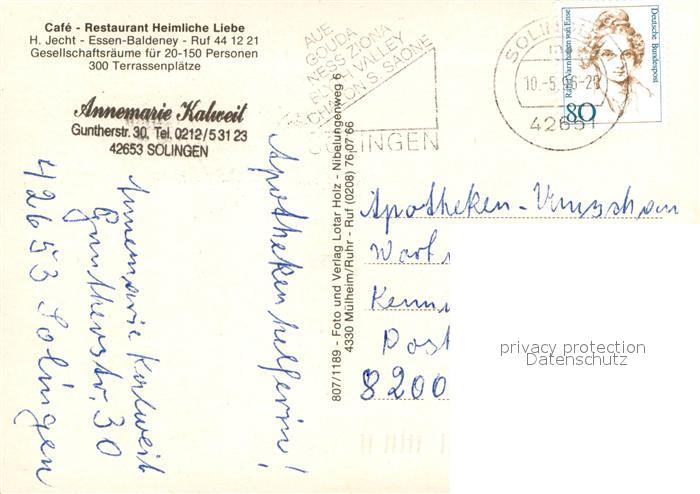 Café - Restaurant Heimliche Liebe
H. Jecht - Essen-Baldeney - Ruf 44 12 21
Gesellschaftsräume für 20-150 Personen
300 Terrassenplätze
Annemarie Kalweit
Guntherstr. 30, Tel. 0212/5 31 23
42653 SOLINGEN
Annemarie Kalweit
Guntherstr. 30
42653 Solingen
Apothekenhelferin!
807/1189 - Foto und Verlag Lotar Holz - Nibelungenweg 6
4330 Mülheim/Ruhr - Ruf (0208) 76 07 66
AUE
GOUDA
NESS ZIONA
VALLEY
CHALON S. SAONE
SOLINGEN
SOLINGEN
10.-5.96-2
42651
Deutsche Bundespost
Rahel Varnhagen von Ense
80
Apotheken-Umschau
Wort
Kenn
Post
8200
privacy protection
Datenschutz